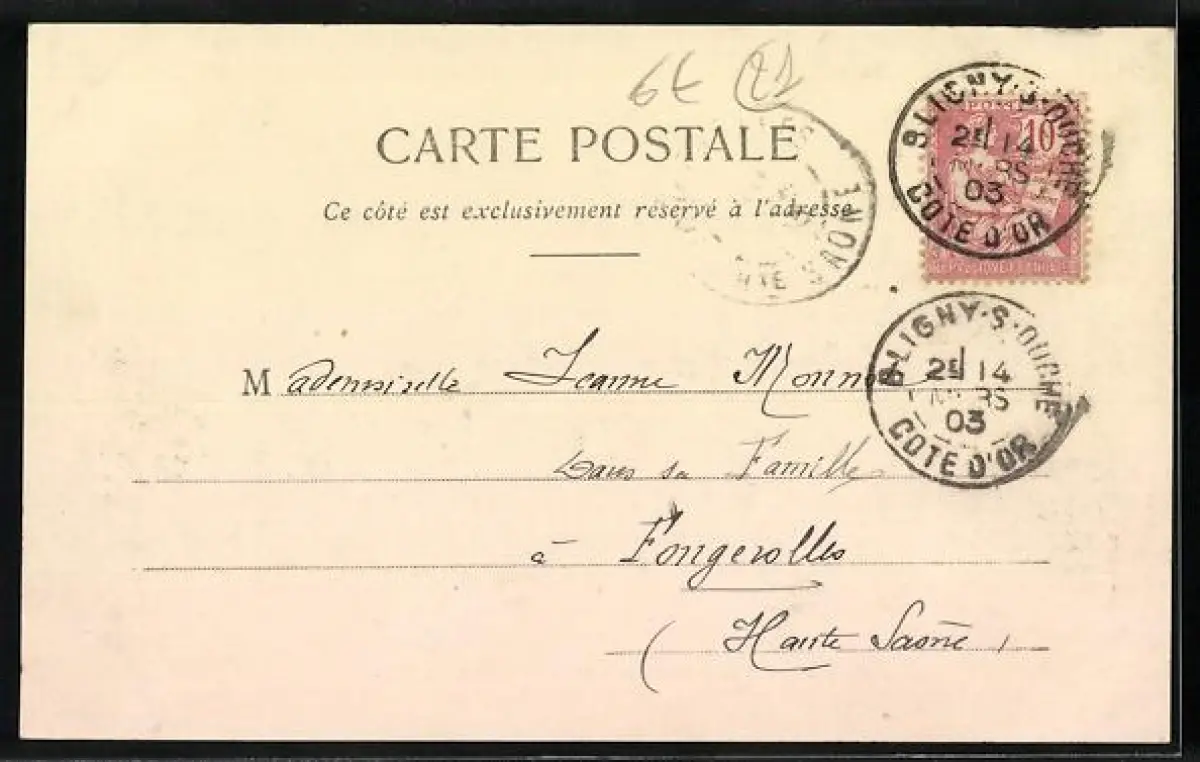 6€ 21
CARTE POSTALE
Ce côté est exclusivement réservé à l'adresse
BLIGNY-S-OUCHE
POSTES
10
2E 14
MARS
03
COTE D'OR
SAONE
BLIGNY-S-OUCHE
2E 14
MARS
03
COTE D'OR
Mademoiselle Jeanne
Dans sa Famille
à Fougerolles
(Haute Saône)